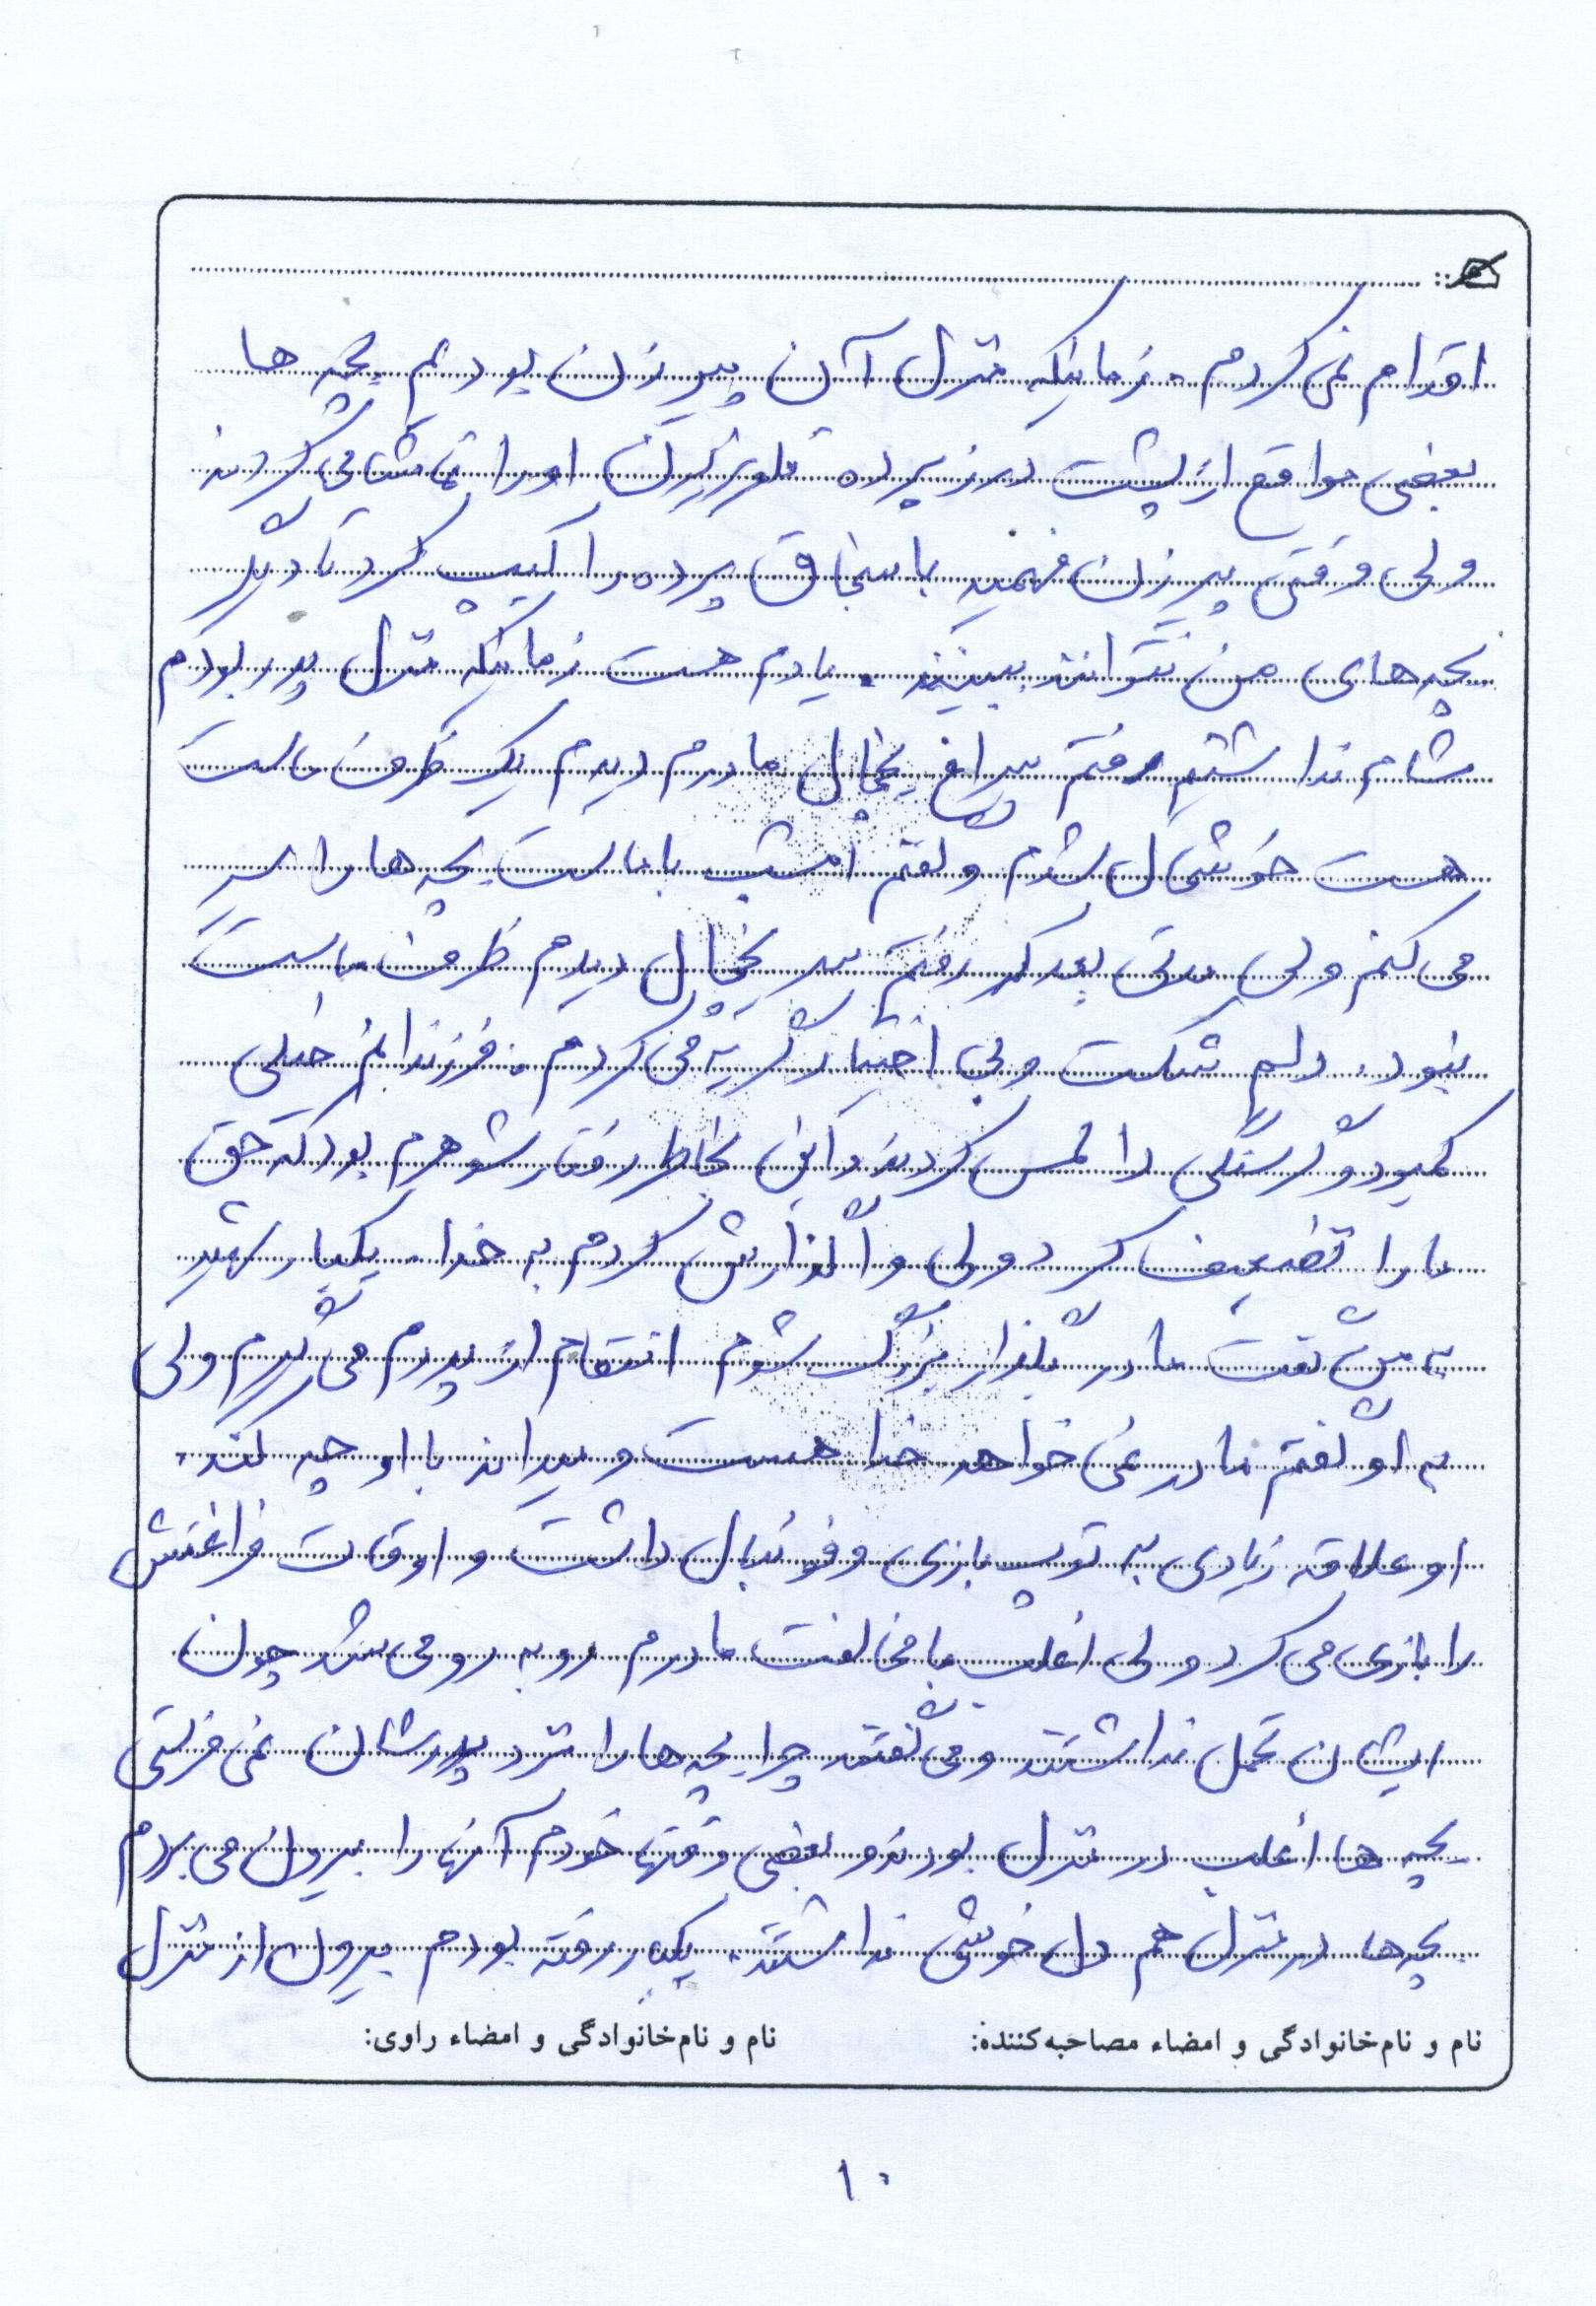 اقدام نمی کردم. زمانیکه منزل آن پیرزن بودیم بچه ها
بعضی مواقع از پشت درز پرده تلویزیون او را تماشا می کردند
ولی وقتی پیرزن فهمید با سنجاق پرده را کیپ کرد تا دیگر
بچه های من نتوانند ببینند. یادم هست زمانیکه منزل پدر بودم
شام نداشتیم رفتم سراغ یخچال مادرم دیدم یک ظرف ماست
هست خوشحال شدم و گفتم امشب با ماست بچه ها را سیر
می کنم ولی مدتی بعد که رفتم سر یخچال دیدم ظرف ماست
نبود. دلم شکست و بی اختیار گریه می کردم. فرزندانم خیلی
کمبود و گرسنگی را لمس کردند و این بخاطر رفتار شوهرم بود که حق
ما را تضییف کرد ولی واگذارش کردم به خدا. یکبار شهید
به من گفت مادر بگذار بزرگ شوم انتقام از پدرم می گیرم ولی
به او گفتم مادر نمی خواهد خدا هست و میداند با او چه کند.
او علاقه زیادی به توپ بازی و فوتبال داشت و اوقات فراغتش
را بازی می کرد ولی اغلب با مخالفت مادرم روبه رو می شد چون
ایشان تحمل نداشتند و می گفتند چرا بچه ها را نزد پدرشان نمی فرستی
بچه ها اغلب در منزل بودند و بعضی وقتها خودم آنها را بیرون می بردم
بچه ها در منزل هم دل خوشی نداشتند. یکبار رفته بودم بیرون از منزل
نام و نام‌خانوادگی و امضاء مصاحبه‌کننده: نام و نام‌خانوادگی و امضاء راوی:
۱۰